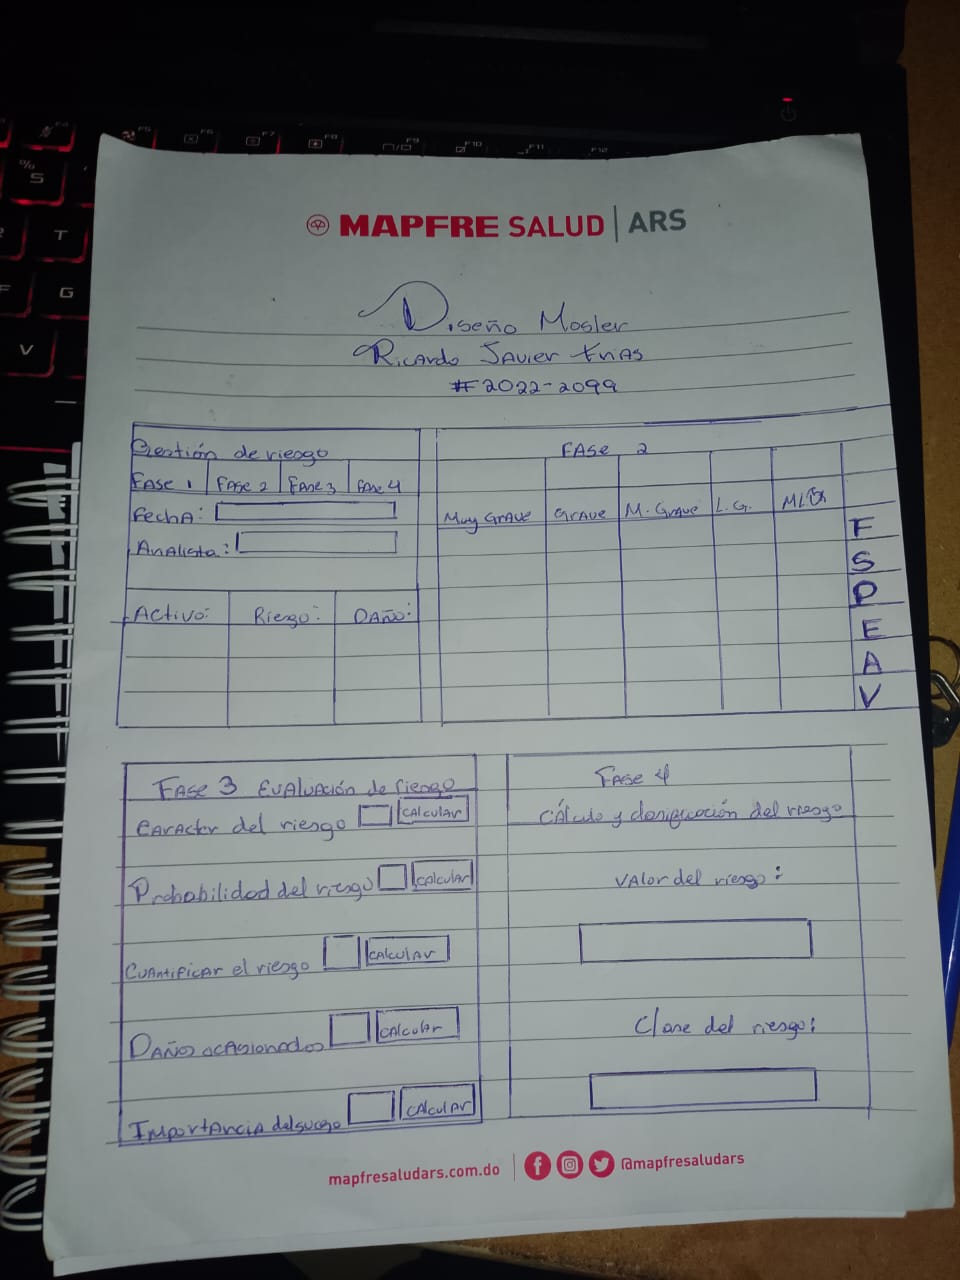 MAPFRE SALUD | ARS
Diseño Mosler
Ricardo Javier
#2022-2099
Gestión de riesgo
Fase 1 Fase 2 Fase 3 Fase 4
Fecha:
Analista:
Activo: Riesgo: Daño:
Fase 2
Muy Grave Grave M. Grave L. G.
F
S
P
E
A
V
Fase 3 Evaluación de riesgo
Caracter del riesgo Calcular
Probabilidad del riesgo Calcular
Cuantificar el riesgo Calcular
Daños ocasionados Calcular
Importancia del suceso Calcular
Fase 4
Cálculo y clasificación del riesgo
Valor del riesgo:
Clase del riesgo:
mapfresaludars.com.do | @mapfresaludars
F5 F6 F7 F8 F9 F10 F11 F12
%
S
T
F G
V